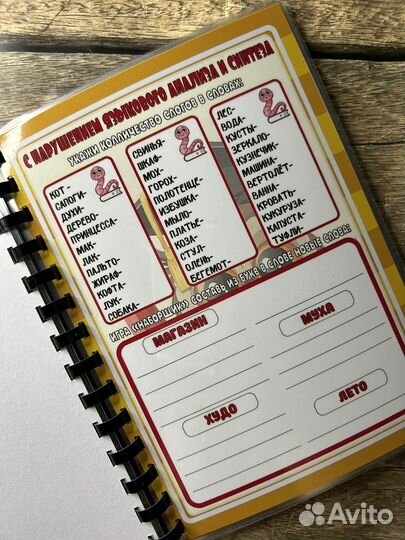 С НАРУШЕНИЕМ ЯЗЫКОВОГО АНАЛИЗА И СИНТЕЗА
УКАЖИ КОЛЛИЧЕСТВО СЛОГОВ В СЛОВАХ:
КОТ-
САПОГИ-
ДУХИ-
ДЕРЕВО-
ПРИНЦЕССА-
МАК-
ЛАК-
ПАЛЬТО-
ЖИРАФ-
КОФТА-
ЛУК-
СОБАКА-
СВИНЬЯ-
ШКАФ-
МОХ-
ГОРОХ-
ПОЛОТЕНЦЕ-
ИЗБУШКА-
МЫЛО-
ПЛАТЬЕ-
КОЗА-
СТУЛ-
ОЛЕНЬ-
БЕГЕМОТ-
ЛЕС-
ВОДА-
КУСТЫ-
ЗЕРКАЛО-
КУЗНЕЧИК-
МАШИНА-
ВЕРТОЛЁТ-
ВАННА-
КРОВАТЬ-
КУКУРУЗА-
КАПУСТА-
ТУФЛИ-
ИГРА «НАБОРЩИК» СОСТАВЬ ИЗ БУКВ В СЛОВЕ НОВЫЕ СЛОВА:
МАГАЗИН
МУХА
ХУДО
ЛЕТО
Avito